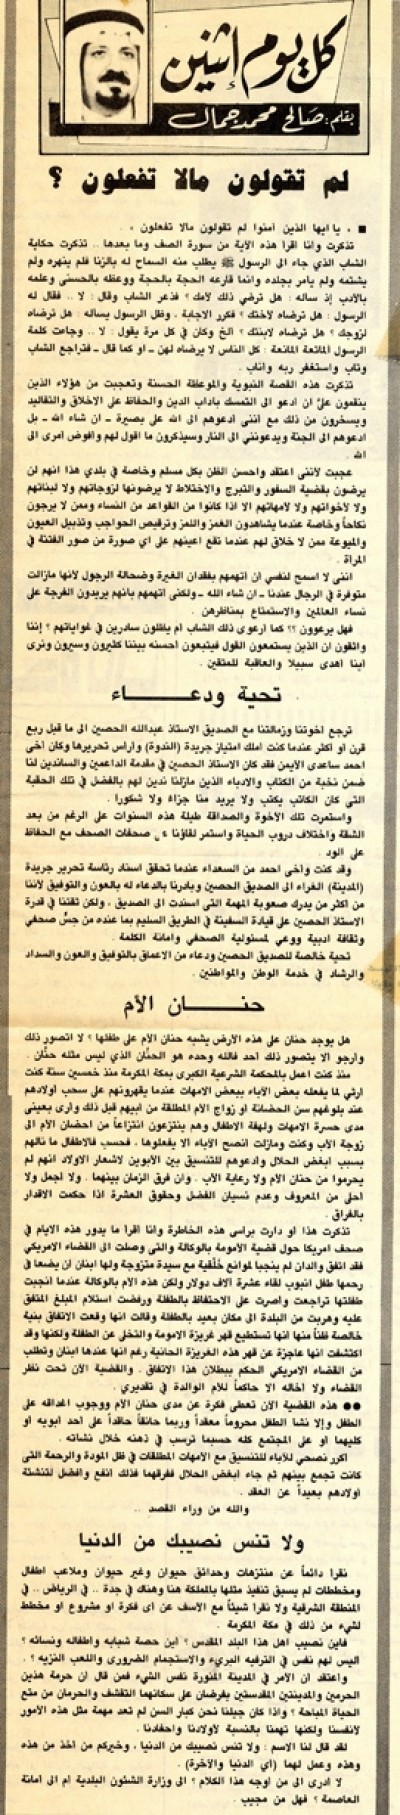 كل يوم إثنين
بقلم: صالح محمد جمال
لم تقولون مالا تفعلون ؟
■ « يا ايها الذين آمنوا لم تقولون مالا تفعلون » .
تذكرت وانا اقرا هذه الآية من سورة الصف وما بعدها .. تذكرت حكاية
الشاب الذي جاء الى الرسول ﷺ يطلب منه السماح له بالزنا فلم ينهره ولم
يشتمه ولم يأمر بجلده وانما قارعه الحجة بالحجة ووعظه بالحسنى وعلمه
بالأدب إذ ساله : هل ترضى ذلك لأمك؟ فذعر الشاب وقال : لا .. فقال له
الرسول : هل ترضاه لأختك؟ فكرر الاجابة . وظل الرسول يساله : هل ترضاه
لزوجك ؟ هل ترضاه لابنتك ؟ الخ وكان في كل مرة يقول : لا .. وجاءت كلمة
الرسول الجامعة المانعة : كل الناس لا يرضاه لهن ـ او كما قال ـ فتراجع الشاب
وتاب واستغفر ربه واناب .
تذكرت هذه القصة النبوية والموعظة الحسنة وتعجبت من هؤلاء الذين
ينقمون علىّ ان ادعو الى التمسك باداب الدين والحفاظ على الاخلاق والتقاليد
ويسخرون من ذلك مع انني ادعوهم الى الله على بصيرة ـ ان شاء الله ـ بل
ادعوهم الى الجنة ويدعونني الى النار وسيذكرون ما اقول لهم وافوض امرى الى
الله .
عجبت لأننى اعتقد واحسن الظن بكل مسلم وخاصة في بلدي هذا انهم لن
يرضون بقضية السفور والتبرج والاختلاط لا يرضونها لزوجاتهم ولا لبناتهم
ولا لأخواتهم ولا لامهاتهم الا اذا كانوا من القواعد من النساء وممن لا يرجون
نكاحاً وخاصة عندما يشاهدون الغمز واللمز وترقيص الحواجب وتذبيل العيون
والميوعة ممن لا خلاق لهم عندما تقع اعينهم على اي صورة من صور الفتنة في
المرأة .
اننى لا اسمح لنفسي ان اتهمهم بفقدان الغيرة وضحالة الرجولة لأنها مازالت
متوفرة في الرجال عندنا ـ ان شاء الله ـ ولكنى اتهمهم بانهم يريدون الفرجة على
نساء العالمين والاستمتاع بمناظرهن .
فهل يرعوون ؟؟ كما ارعوى ذلك الشاب ام يظلون سادرين في غواياتهم ؟ إننا
واثقون ان الذين يستمعون القول فيتبعون احسنه بيننا كثيرون وسيرون ونرى
اينا اهدى سبيلا والعاقبة للمتقين .
تحية ودعـــــاء
ترجع اخوتنا وزمالتنا مع الصديق الاستاذ عبدالله الحصين الى ما قبل ربع
قرن او اكثر عندما كنت املك امتياز جريدة (الندوة) وارأس تحريرها وكان اخى
احمد ساعدى الأيمن فقد كان الاستاذ الحصين في مقدمة الداعمين والساندين لنا
ضمن نخبة من الكتاب والادباء الذين مازلنا ندين لهم بالفضل في تلك الحقبة
التى كان الكاتب يكتب ولا يريد منا جزاء ولا شكورا .
واستمرت تلك الأخوة والصداقة طيلة هذه السنوات على الرغم من بعد
الشقة واختلاف دروب الحياة واستمر لقاؤنا صفحات الصحف مع الحفاظ
على الود .
وقد كنت واخى احمد من السعداء عندما تحقق اسناد رئاسة تحرير جريدة
(المدينة) الغراء الى الصديق الحصين وبادرنا بالدعاء له بالعون والتوفيق لأننا
من اكثر من يدرك صعوبة المهمة التى اسندت الى الصديق . ولكن ثقتنا في قدرة
الاستاذ الحصين على قيادة السفينة في الطريق السليم بما عنده من حس صحفي
وثقافة ادبية ووعي لمسئولية الصحفي وامانة الكلمة .
تحية خالصة للصديق الحصين ودعاء من الاعماق بالتوفيق والعون والسداد
والرشاد في خدمة الوطن والمواطنين .
حنـــــان الأم
هل يوجد حنان على هذه الأرض يشبه حنان الأم على طفلها؟ لا اتصور ذلك
وارجو الا يتصور ذلك احد فالله وحده هو الحنّان الذي ليس مثله حنّان .
منذ كنت اعمل بالمحكمة الشرعية الكبرى بمكة المكرمة منذ خمسين سنة كنت
ارثي لما يفعله بعض الآباء ببعض الامهات عندما يقهرونهم على سحب اولادهم
عند بلوغهم سن الحضانة او زواج الأم المطلقة من ابيهم قبل ذلك وارى بعينى
مدى حسرة الامهات ولهفة الاطفال وهم ينتزعون انتزاعاً من احضان الأم الى
زوجة الأب وكنت ومازلت انصح الآباء الا يفعلوها . فحسب فالاطفال ما نالهم
بسبب ابغض الحلال وادعوهم للتنسيق بين الأبوين لاشعار الاولاد انهم لم
يحرموا من حنان الأم ولا رعاية الأب . وان فرق الزمان بينهما . ولا اجمل ولا
احلى من المعروف وعدم نسيان الفضل وحقوق العشرة اذا حكمت الاقدار
بالفراق .
تذكرت هذا او دارت براسي هذه الخاطرة وانا اقرأ ما يدور هذه الايام في
صحف امريكا حول قضية الأمومة بالوكالة والتى وصلت الى القضاء الامريكي
فقد اتفق والدان لم ينجبا لموانع خَلْقية مع سيدة متزوجة ولها ابنان ان يضعا في
رحمها طفل انبوب لقاء عشرة آلاف دولار ولكن هذه الأم بالوكالة عندما انجبت
طفلتها تراجعت واصرت على الاحتفاظ بالطفلة ورفضت استلام المبلغ المتفق
عليه وهربت من البلدة الى مكان بعيد بالطفلة وقالت انها وقعت الاتفاق بنية
خالصة ظناً منها انها تستطيع قهر غريزة الامومة والتخلى عن الطفلة ولكنها وقد
اكتشفت انها عاجزة عن قهر هذه الغريزة الحانية رغم انها عندها ابنان وتطلب
من القضاء الامريكي الحكم ببطلان هذا الاتفاق . والقضية الآن تحت نظر
القضاء ولا اخاله الا حاكماً للأم الوالدة في تقديري .
●● هذه القضية الآن تعطى فكرة عن مدى حنان الأم ووجوب اغداقه على
الطفل والا نشأ الطفل محروماً معقداً وربما حانقاً حاقداً على احد ابويه او
كليهما او على المجتمع كله حسبما ترسب في ذهنه خلال نشاته .
اكرر نصحي للآباء للتنسيق مع الامهات المطلقات في ظل المودة والرحمة التى
كانت تجمع بينهم ثم جاء ابغض الحلال ففرقهما فذلك انفع وافضل لتنشئة
اولادهم بعيداً عن العقد .
والله من وراء القصد ..
ولا تنس نصيبك من الدنيا
نقرأ دائماً عن منتزهات وحدائق حيوان وغير حيوان وملاعب اطفال
ومخططات لم يسبق تنفيذ مثلها بالمملكة هنا وهناك في جدة .. في الرياض .. في
المنطقة الشرقية ولا نقرأ شيئاً مع الأسف عن أى فكرة او مشروع او مخطط
لشيء من ذلك في مكة المكرمة .
فاين نصيب اهل هذا البلد المقدس ؟ اين حصة شبابه واطفاله ونسائه ؟
اليس لهم نفس في الترفيه البريء والاستجمام الضروري واللعب النزيه ؟ .
واعتقد ان الأمر في المدينة المنورة نفس الشيء فمن قال ان حرمة هذين
الحرمين والمدينتين المقدستين يفرضان على سكانهما التقشف والحرمان من متع
الحياة المباحة ؟ واذا كان جيلنا نحن كبار السن لم تعد مهمة مثل هذه الأمور
لأنفسنا ولكنها تهمنا بالنسبة لأولادنا واحفادنا .
لقد قال لنا الاسم : ولا تنس نصيبك من الدنيا . وخيركم من اخذ من هذه
وهذه وعمل لهما (أي الدنيا والآخرة) .
لا ادرى الى من اوجه هذا الكلام ؟ الى وزارة الشئون البلدية ام الى امانة
العاصمة ؟ فهل من مجيب .